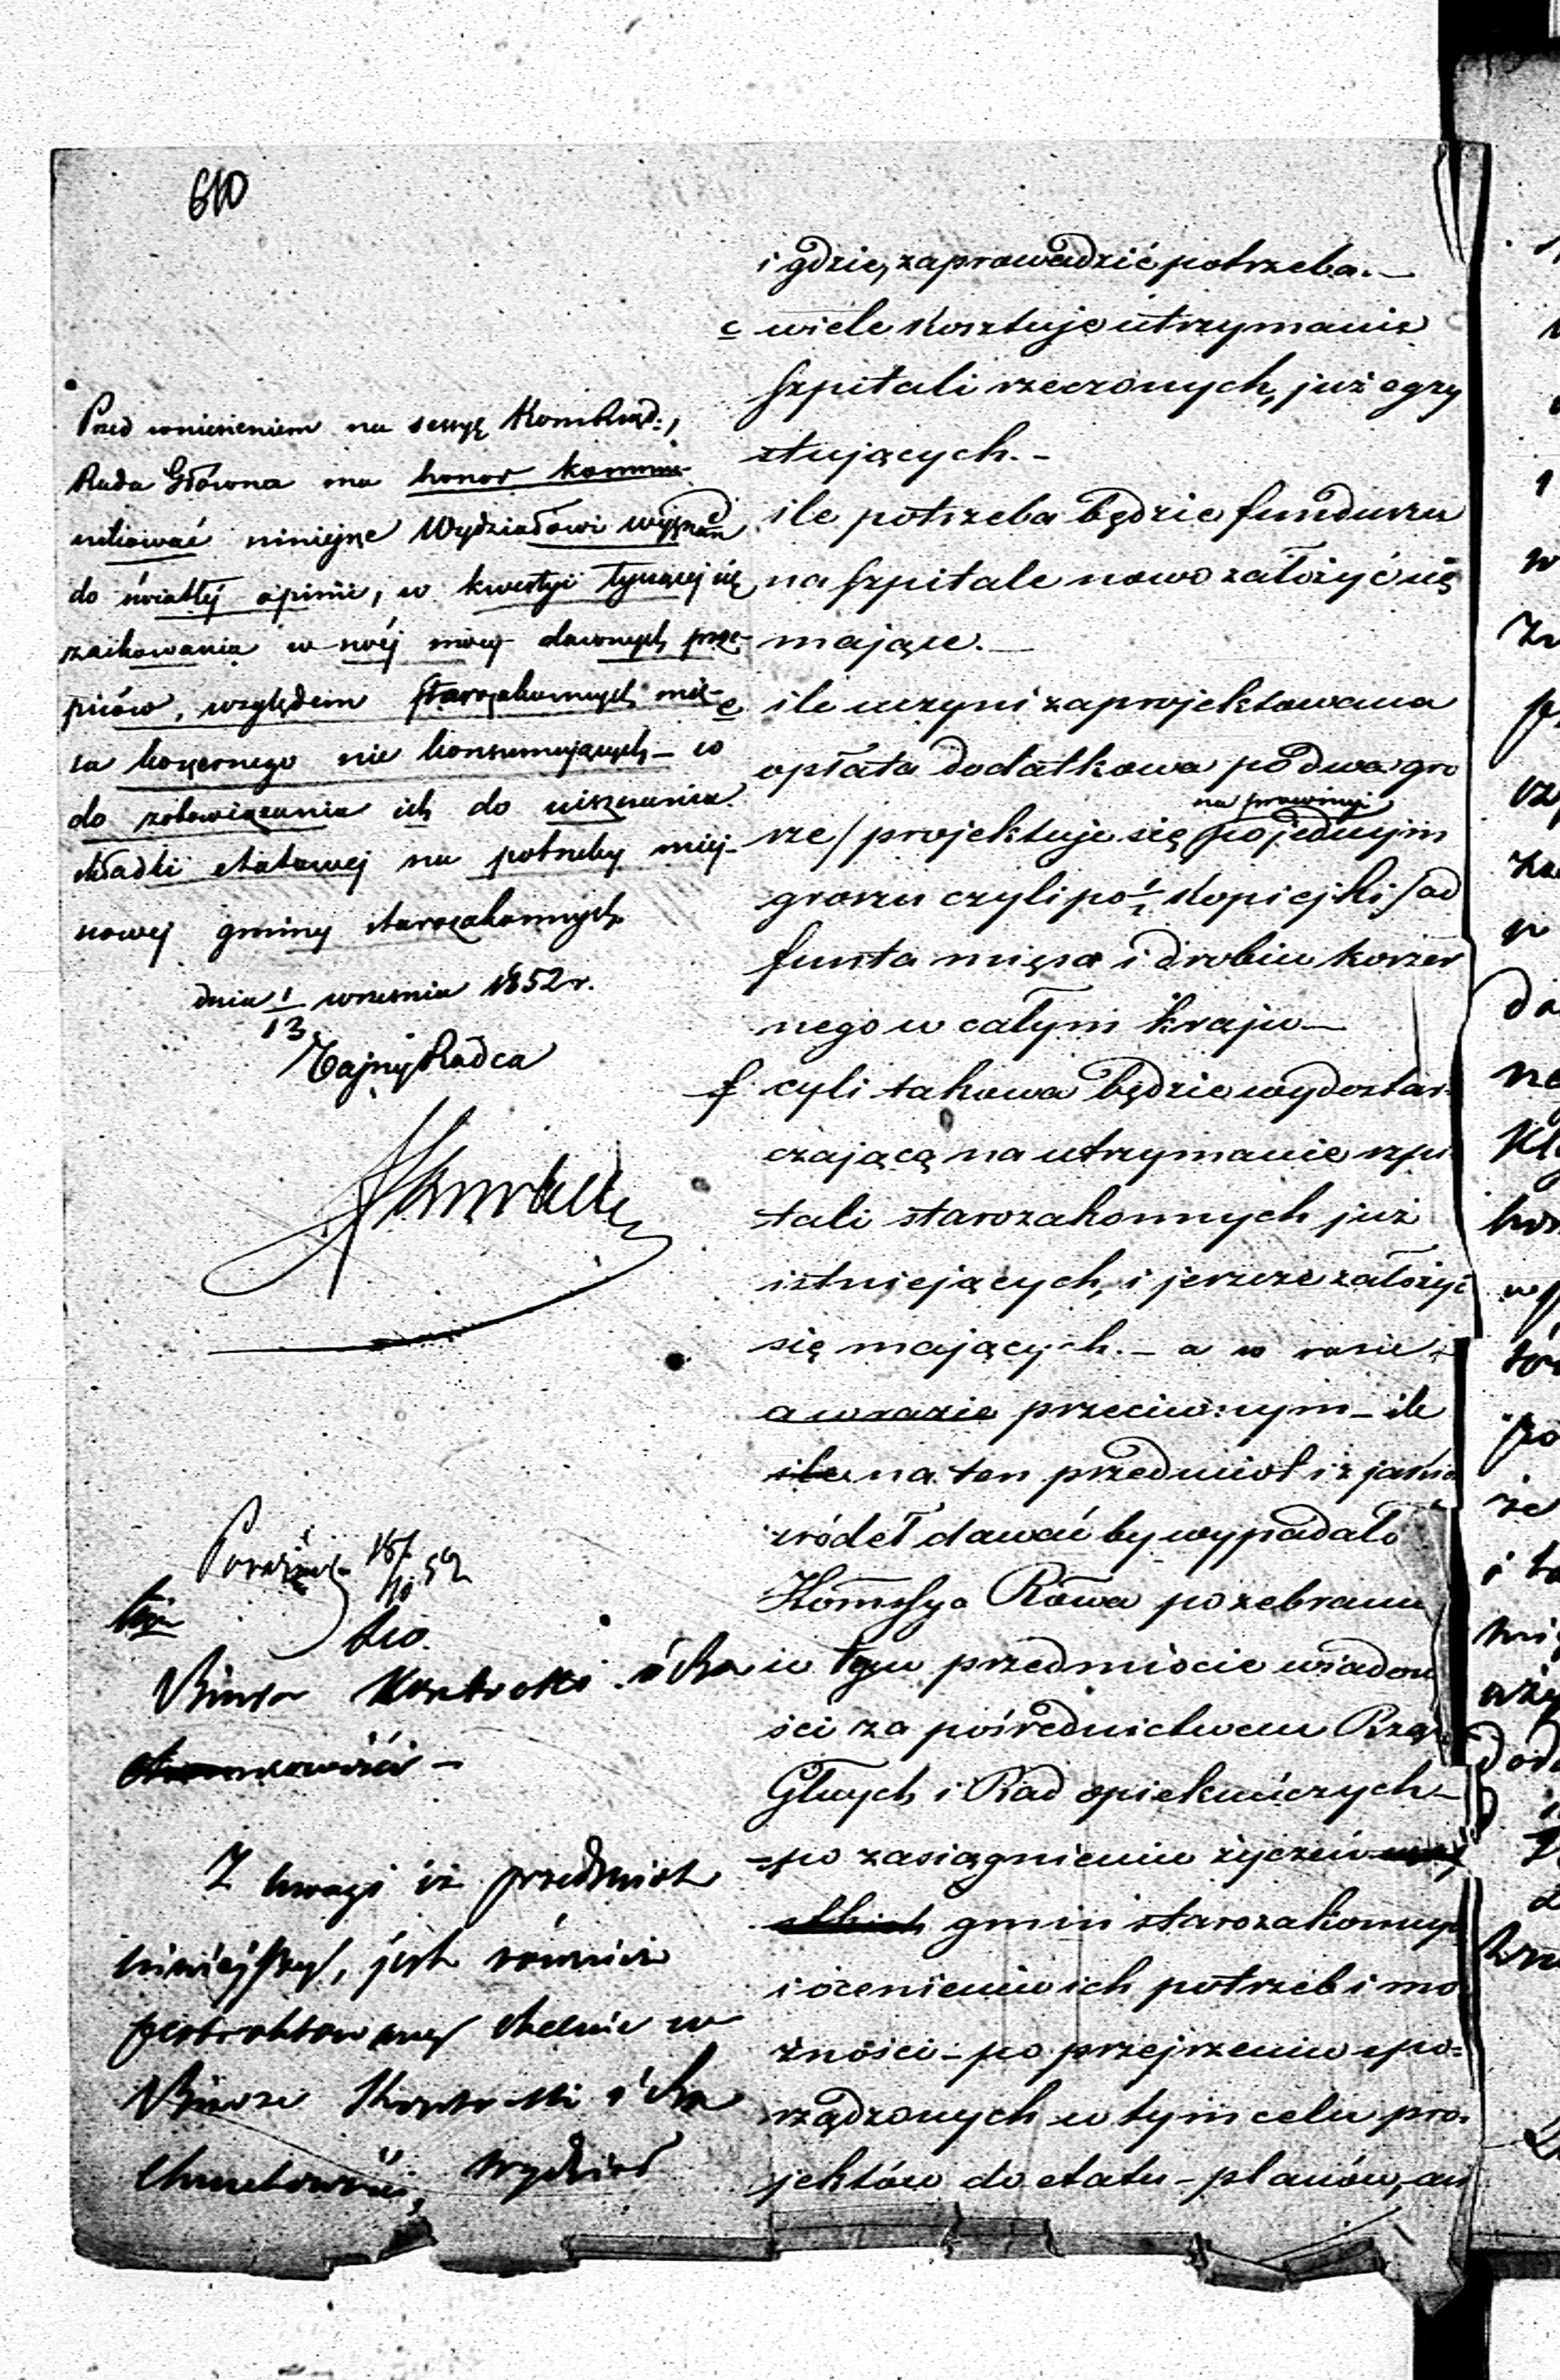 610
Przed wniesieniem na sessyę Kom: Rząd:,
Rada Główna ma honor kommu-
nikować niniejsze Wydziałowi wyznań
do światłej opinii, w kwestyi tyczącej się
zachowania w swój mocy dawnych prze-
pisów, względem starozakonnych mię-
sa koszernego nie konsumujących – co
do zobowiązania ich do uiszczania
składki etatowej na potrzeby miej-
scowej gminy starozakonnych
dnia 1/13 września 1852 r.
Tajny Radca
18/10 52
Biura Kontroli i Ra
Z uwagi iż przedmiot
niniejszy, jest również
traktowany obecnie w
Biurze Kontroli i Ra
chunkowości, wydział
i gdzie, zaprowadzić potrzeba. –
c wiele kosztuje utrzymanie
szpitali rzeczonych, już egzy
stujących. –
d ile potrzeba będzie funduszu
na szpitale nowo założyć się
mające. –
e ile uczyni zaprojektowana
opłata dodatkowa po dwa gro
sze / projektuje się na prowincyi po jednym
groszu czyli po ½ kopiejki / od
funta mięsa i drobiu koszer
nego w całym kraju –
f czyli takowa będzie wydostar-
czającą na utrzymanie szpi
tali starozakonnych już
istniejących, i jeszcze założyć
się mających. – a w razie
a w razie przeciwnym – ile
ile na ten przedmiot i z jakich
źródeł dawać by wypadało
Kommissya Rząwa po zebraniu
w tym przedmiocie wiadomo
ści za pośrednictwem Rząd
Głwych i Rad opiekuńczych –
– po zasiągnieniu życzeń
gmin starozakonnych
i ocenieniu ich potrzeb i mo
żności – po przejrzeniu spo=
rządzonych w tym celu pro-
jektów do etatu – planów, an